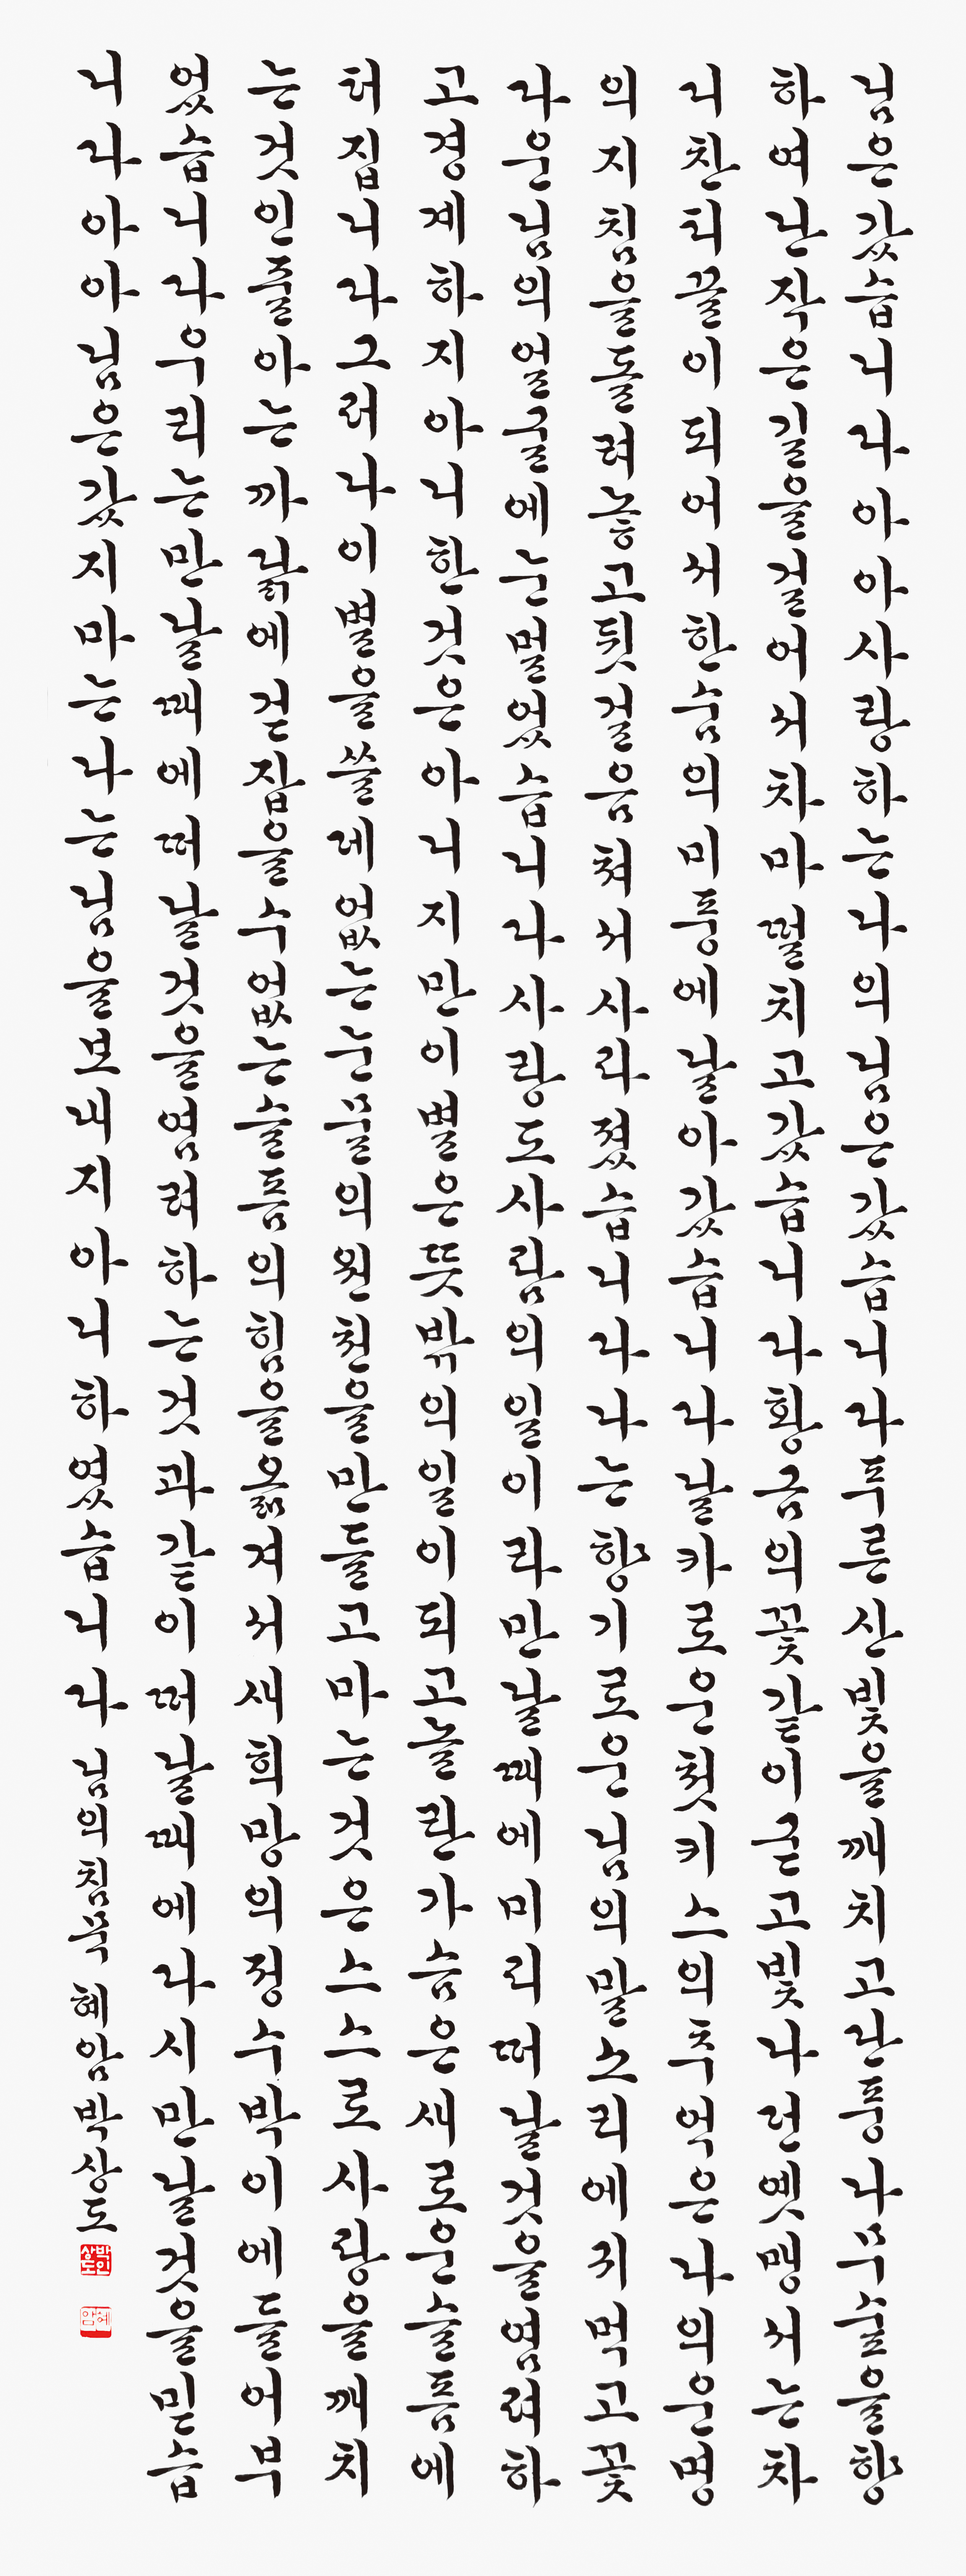 님은갔습니다아아사랑하는나의님은갔습니다푸른산빛을깨치고단풍나무숲을향
하여난작은길을걸어서차마떨치고갔습니다황금의꽃같이굳고빛나던옛맹서는차
디찬티끌이되어서한숨의미풍에날아갔습니다날카로운첫키스의추억은나의운명
의지침을돌려놓고뒷걸음쳐서사라졌습니다나는향기로운님의말소리에귀먹고꽃
다운님의얼굴에눈멀었습니다사랑도사람의일이라만날때에미리떠날것을염려하
고경계하지아니한것은아니지만이별은뜻밖의일이되고놀란가슴은새로운슬픔에
터집니다그러나이별을쓸데없는눈물의원천을만들고마는것은스스로사랑을깨치
는것인줄아는까닭에걷잡을수없는슬픔의힘을옮겨서새희망의정수박이에들어부
었습니다우리는만날때에떠날것을염려하는것과같이떠날때에다시만날것을믿습
니다아아님은갔지마는나는님을보내지아니하였습니다 님의침묵 혜암박상도
박인상도
혜암